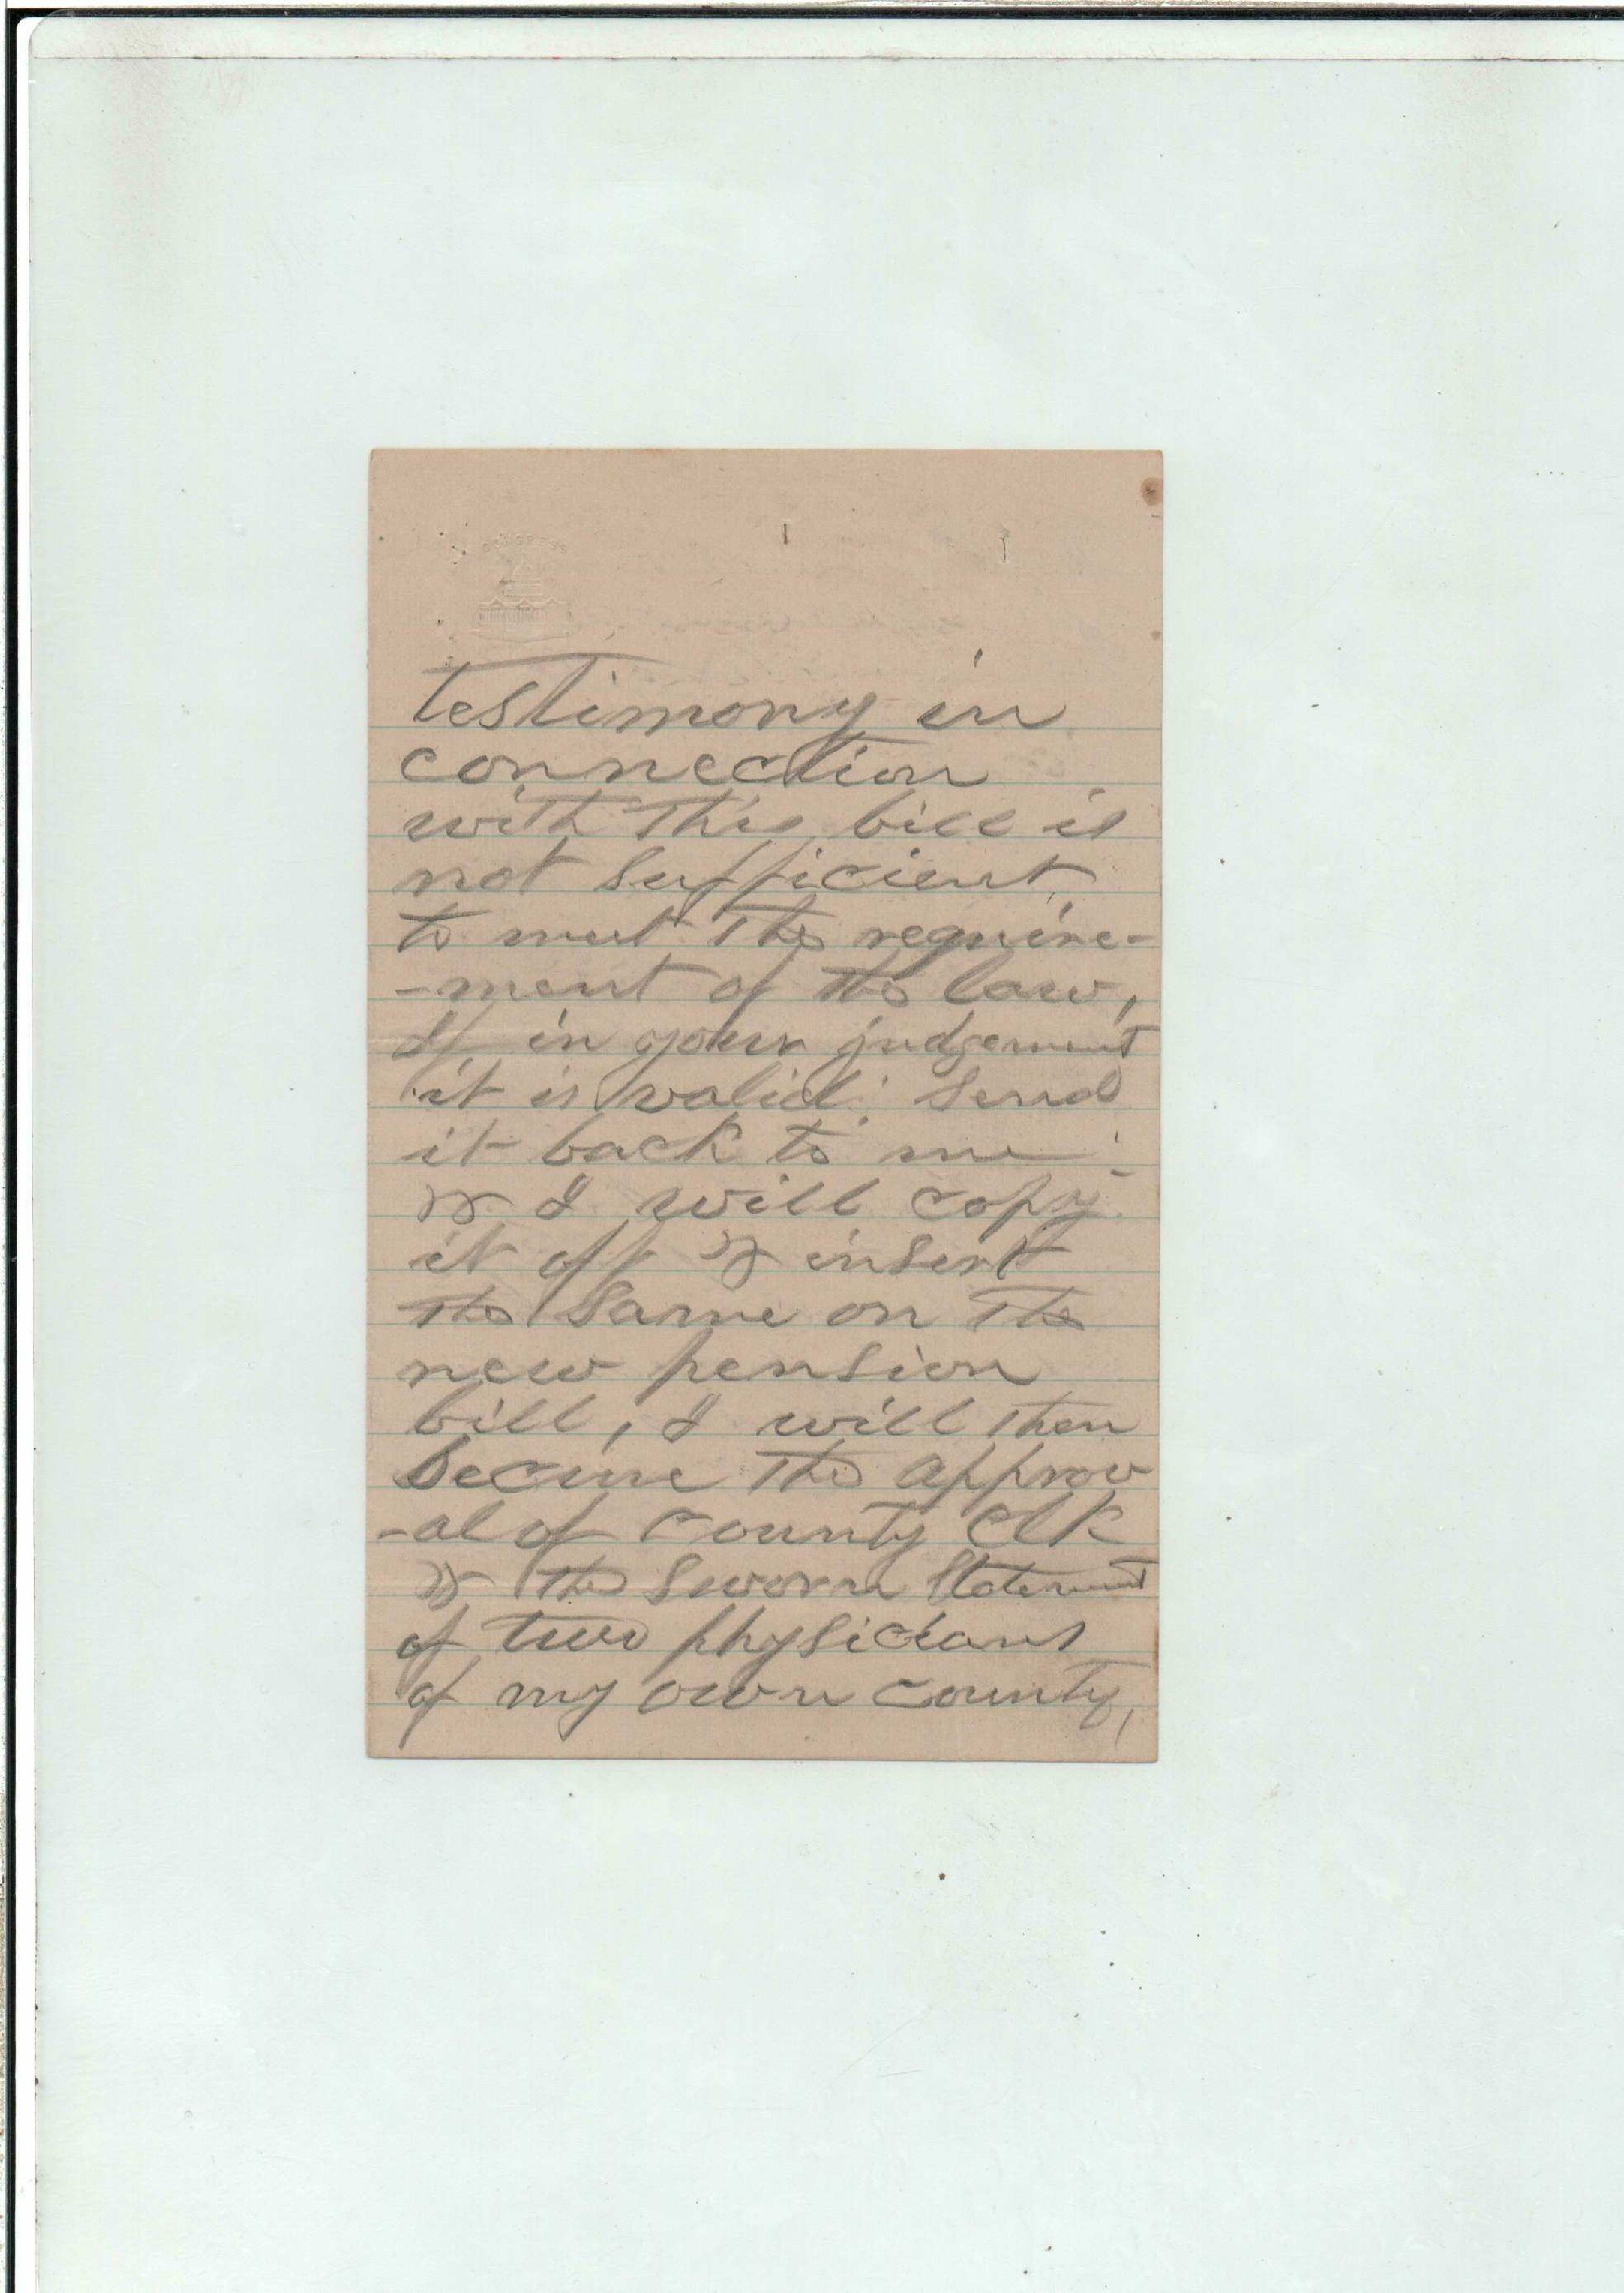 CONGRESS
testimony in
connection
with this bill is
not sufficient
to meet the require-
-ment of the law,
If in your judgement
it is valid: Send
it back to me
& I will copy
it off & insert
the same on the
new pension
bill, I will then
secure the approv
-al of county clk
& the sworn statement
of two physicians
of my own county,